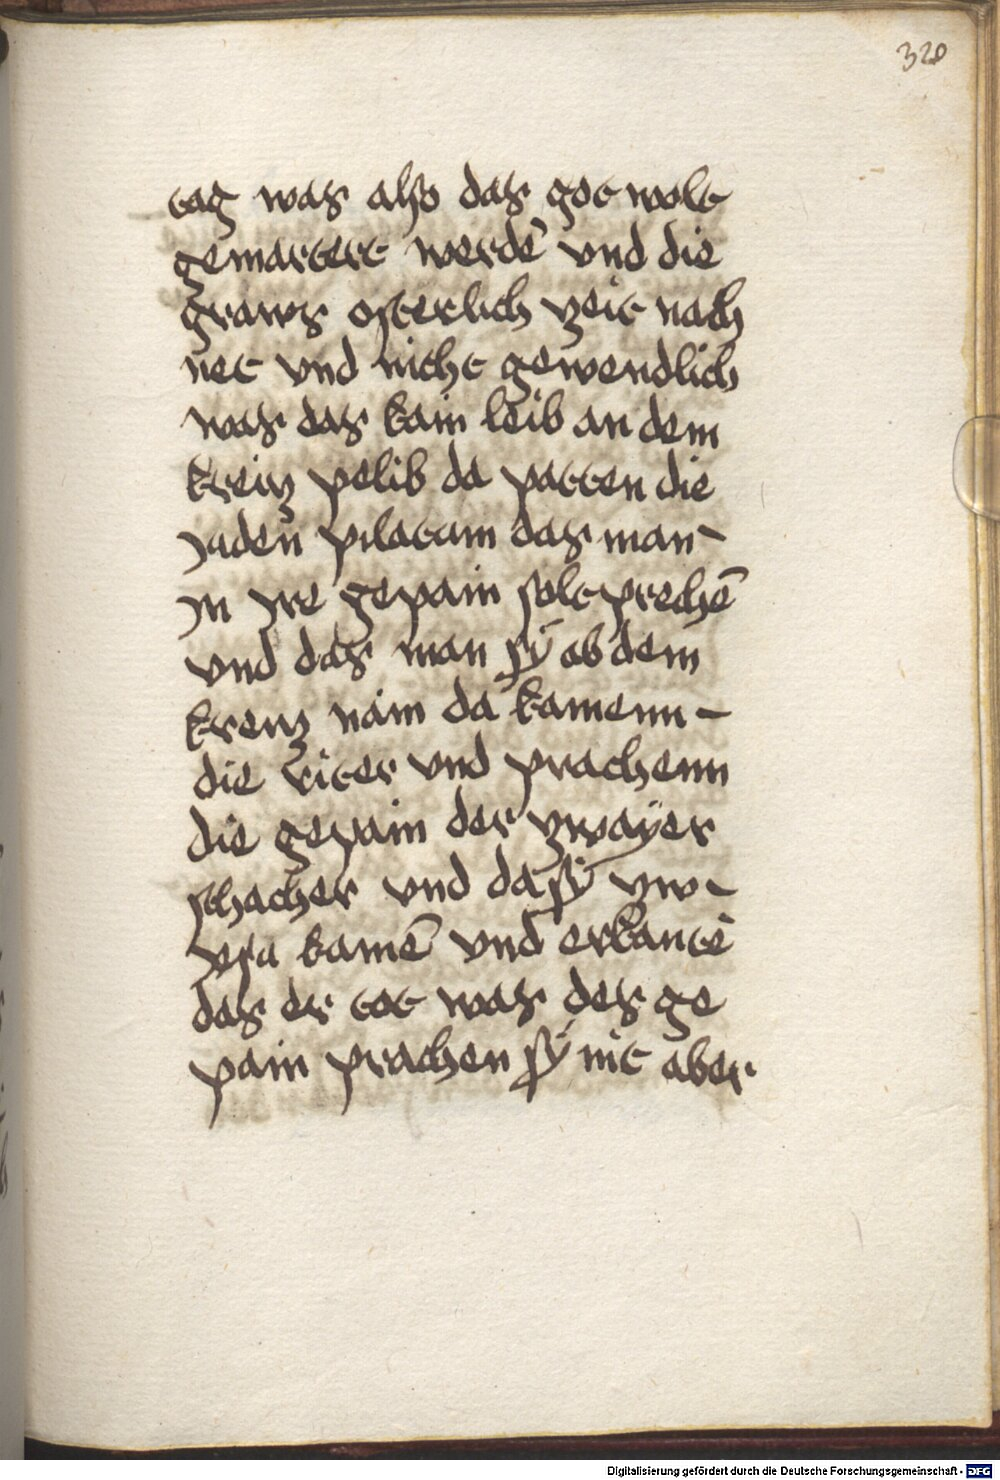 320
tag was also das got wolt
gemartert werdē vnd die
graws osterlich zeit nach
net vnd nicht gewendlich
was das kain leib an dem
kreiz pelib da patten die
Juden pilatum das man
Jn Jre gepain solt prechē
vnd das man sy ab dem
kreuz nam da kamenn
die riter vnd prachenn
die gepain der zwayer
schacher vnd da sy zw
kamē vnd erkantē
das er tot was des ge
pain prachen sy nit aber
Digitalisierung gefördert durch die Deutsche Forschungsgemeinschaft - DFG